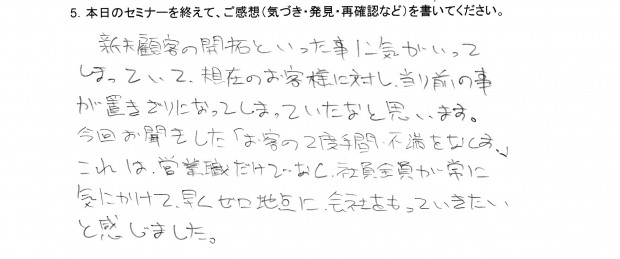 5. 本日のセミナーを終えて、ご感想（気づき・発見・再確認など）を書いてください。
新規顧客の開拓といった事に気がいって
しまっていて、現在のお客様に対し、当り前の事
が置きざりになってしまっていたなと思います。
今回お聞きした「お客の2度手間・不満をなくす」
これは、営業職だけでなく、社員全員が常に
気にかけて、早くゼロ地点に、会社をもっていきたい
と感じました。